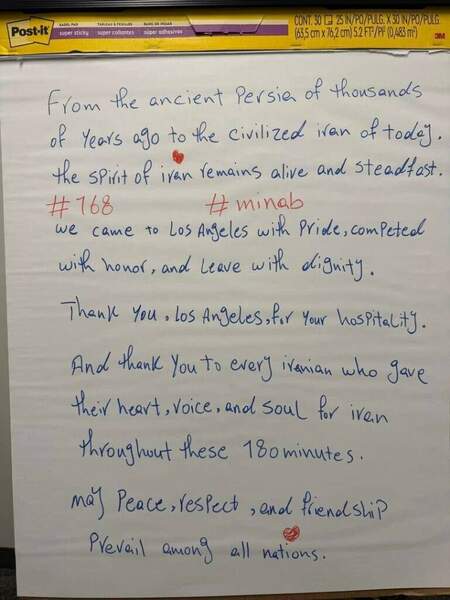 Post-it
EASEL PAD
super sticky
TABLEAU À FEUILLES
super collantes
BLOC DE HOJAS
súper adhesivas
CONT. 30 25 IN/PO/PULG. X 30 IN/PO/PULG
(63,5 cm x 76,2 cm) 5.2 FT²/PI² (0,483 m²)
3M
From the ancient Persia of thousands
of Years ago to the civilized iran of today.
the spirit of iran remains alive and steadfast.
#168 #minab
we came to Los Angeles with Pride, competed
with honor, and Leave with dignity.
Thank You, Los Angeles, for Your hospitality.
And thank You to every iranian who gave
their heart, voice, and soul for iran
throughout these 180 minutes.
may Peace, respect, and friendship
Prevail among all nations.